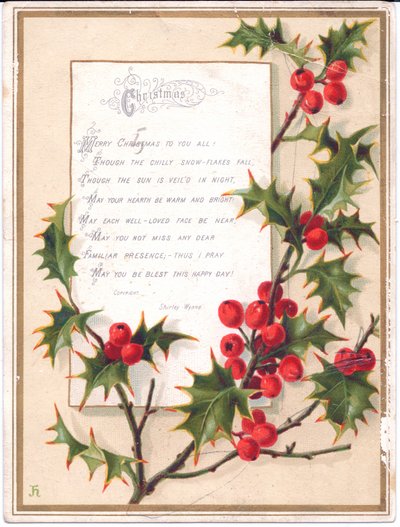 Christmas
Merry Christmas to you all!
Though the chilly snow-flakes fall,
Though the sun is veil'd in night,
May your hearth be warm and bright;
May each well-loved face be near,
May you not miss any dear
Familiar presence;-thus I pray
May you be blest this happy day!
Copyright.
Shirley Wynne.